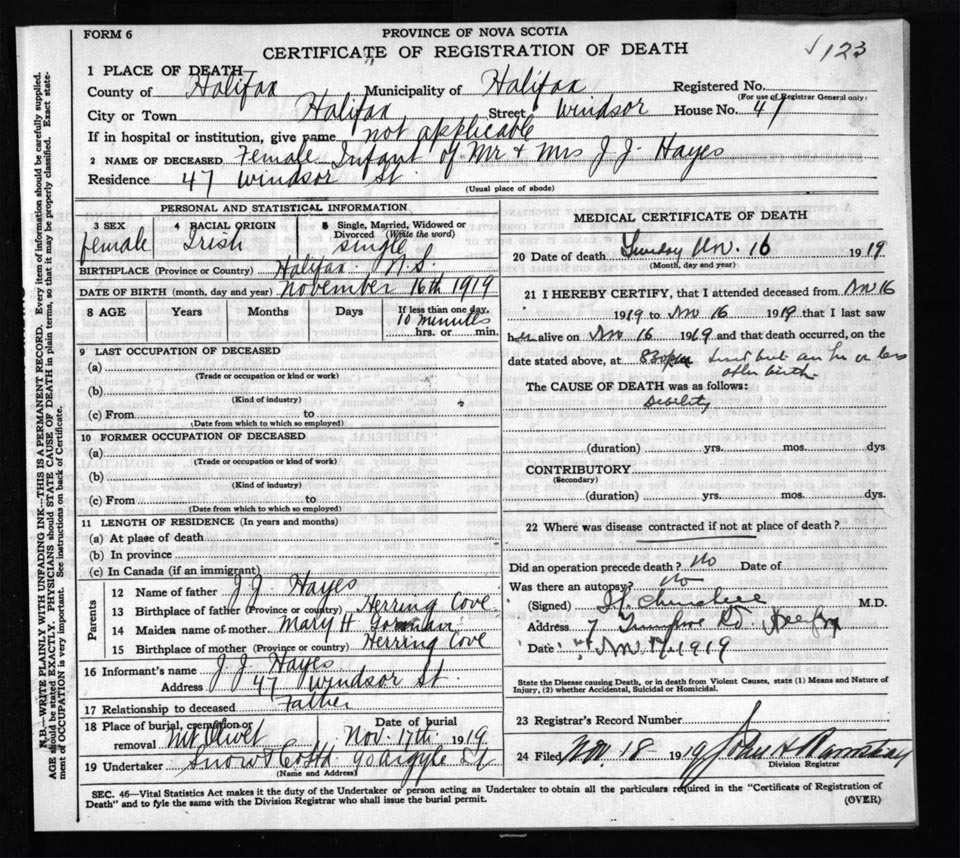 FORM 6
PROVINCE OF NOVA SCOTIA
CERTIFICATE OF REGISTRATION OF DEATH
√ 123
1 PLACE OF DEATH
County of Halifax Municipality of Halifax Registered No.
(For use of Registrar General only)
City or Town Halifax Street Windsor House No. 47
If in hospital or institution, give name not applicable
2 NAME OF DECEASED Female Infant of Mr & Mrs J J Hayes
Residence 47 Windsor St.
(Usual place of abode)
PERSONAL AND STATISTICAL INFORMATION
3 SEX female 4 RACIAL ORIGIN Irish 5 Single, Married, Widowed or Divorced (Write the word) single
BIRTHPLACE (Province or Country) Halifax N.S.
DATE OF BIRTH (month, day and year) November 16th 1919
8 AGE Years Months Days If less than one day,
10 minutes
hrs. or min.
9 LAST OCCUPATION OF DECEASED
(a)
(Trade or occupation or kind or work)
(b)
(Kind of industry)
(c) From to
(Date from which to which so employed)
10 FORMER OCCUPATION OF DECEASED
(a)
(Trade or occupation or kind of work)
(b)
(Kind of industry)
(c) From to
(Date from which to which so employed)
11 LENGTH OF RESIDENCE (In years and months)
(a) At place of death
(b) In province
(c) In Canada (if an immigrant)
Parents
12 Name of father J. J. Hayes
13 Birthplace of father (Province or country) Herring Cove
14 Maiden name of mother Mary H Gorman
15 Birthplace of mother (Province or country) Herring Cove
16 Informant's name J. J. Hayes
Address 47 Windsor St.
17 Relationship to deceased Father
18 Place of burial, cremation or removal Mt Olivet Date of burial Nov. 17th 1919
19 Undertaker Snow & Co Ltd 90 Argyle St
(Name and Address)
MEDICAL CERTIFICATE OF DEATH
20 Date of death Sunday Nov. 16 1919
(Month, day and year)
21 I HEREBY CERTIFY, that I attended deceased from Nov 16
1919 to Nov 16 1919 that I last saw
her alive on Nov 16 1919 and that death occurred, on the
date stated above, at lived but an hr or less
after birth.
The CAUSE OF DEATH was as follows:
Debility
(duration) yrs. mos. dys
CONTRIBUTORY
(Secondary)
(duration) yrs. mos. dys.
22 Where was disease contracted if not at place of death?
Did an operation precede death? No Date of
Was there an autopsy? No
(Signed) M.D.
Address 7
Date Nov 17 1919
State the Disease causing Death, or in death from Violent Causes, state (1) Means and Nature of
Injury, (2) whether Accidental, Suicidal or Homicidal.
23 Registrar's Record Number
24 Filed Nov. 18 1919 John A
Division Registrar
SEC. 46—Vital Statistics Act makes it the duty of the Undertaker or person acting as Undertaker to obtain all the particulars required in the "Certificate of Registration of
Death" and to fyle the same with the Division Registrar who shall issue the burial permit.
(OVER)
N.B.—WRITE PLAINLY WITH UNFADING INK—THIS IS A PERMANENT RECORD. Every item of information should be carefully supplied.
AGE should be stated EXACTLY. PHYSICIANS should STATE CAUSE OF DEATH in plain terms, so that it may be properly classified. Exact state-
ment of OCCUPATION is very important. See instructions on back of Certificate.